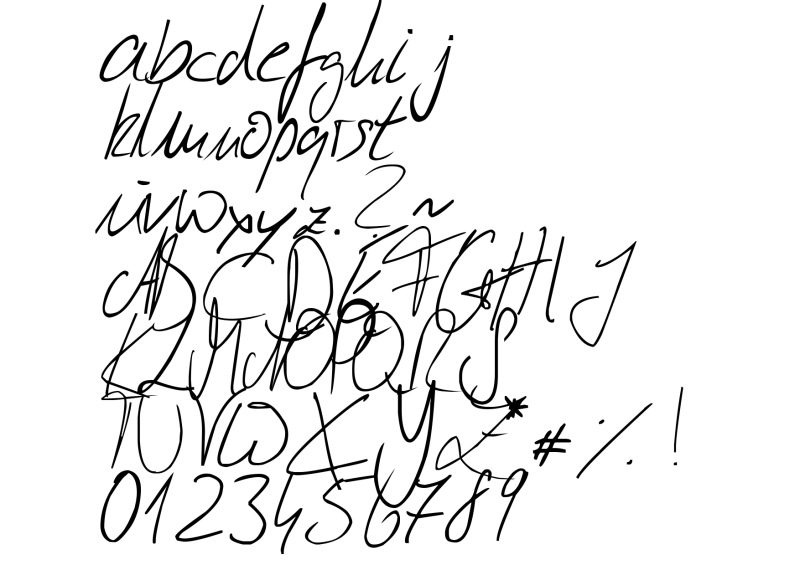 abcdefghij
klmnopqrst
uvwxyz.?~
ABCDEFG&HIJ
KLMNOPQRS
TUVWXYZ*#%!
0123456789